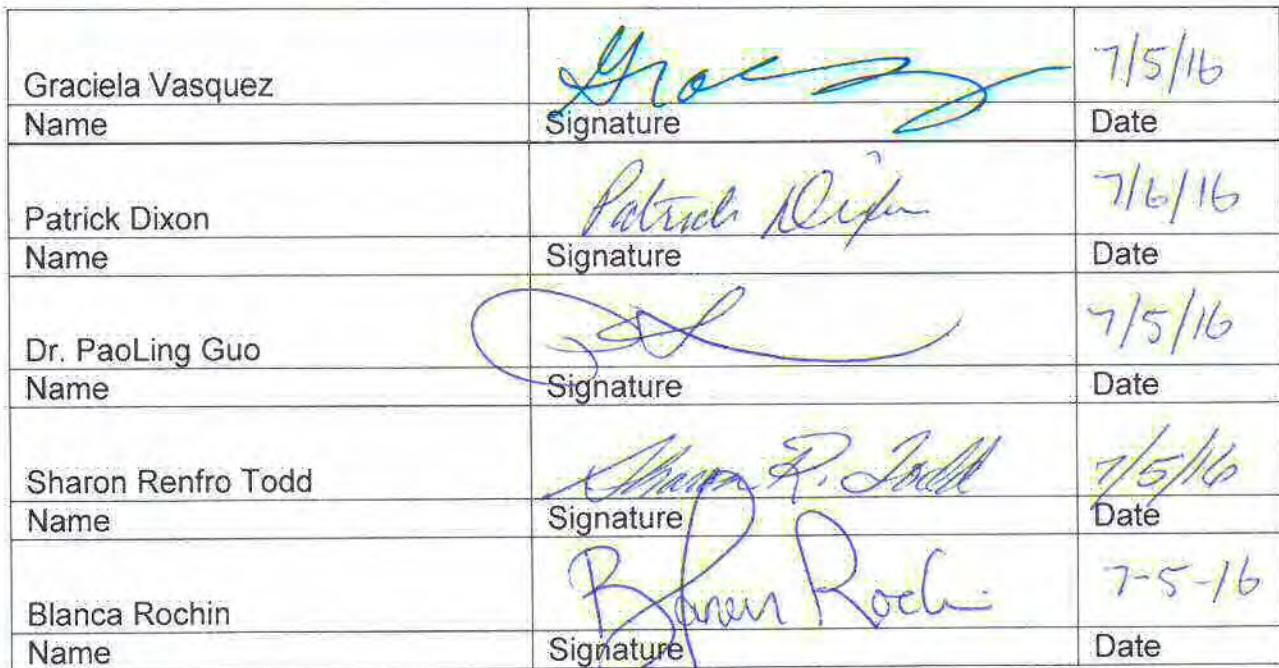 Graciela Vasquez 7/5/16
Name Signature Date
Patrick Dixon Patrick Dixon 7/6/16
Name Signature Date
Dr. PaoLing Guo 7/5/16
Name Signature Date
Sharon Renfro Todd Sharon R. Todd 7/5/16
Name Signature Date
Blanca Rochin Blanca Rochin 7-5-16
Name Signature Date